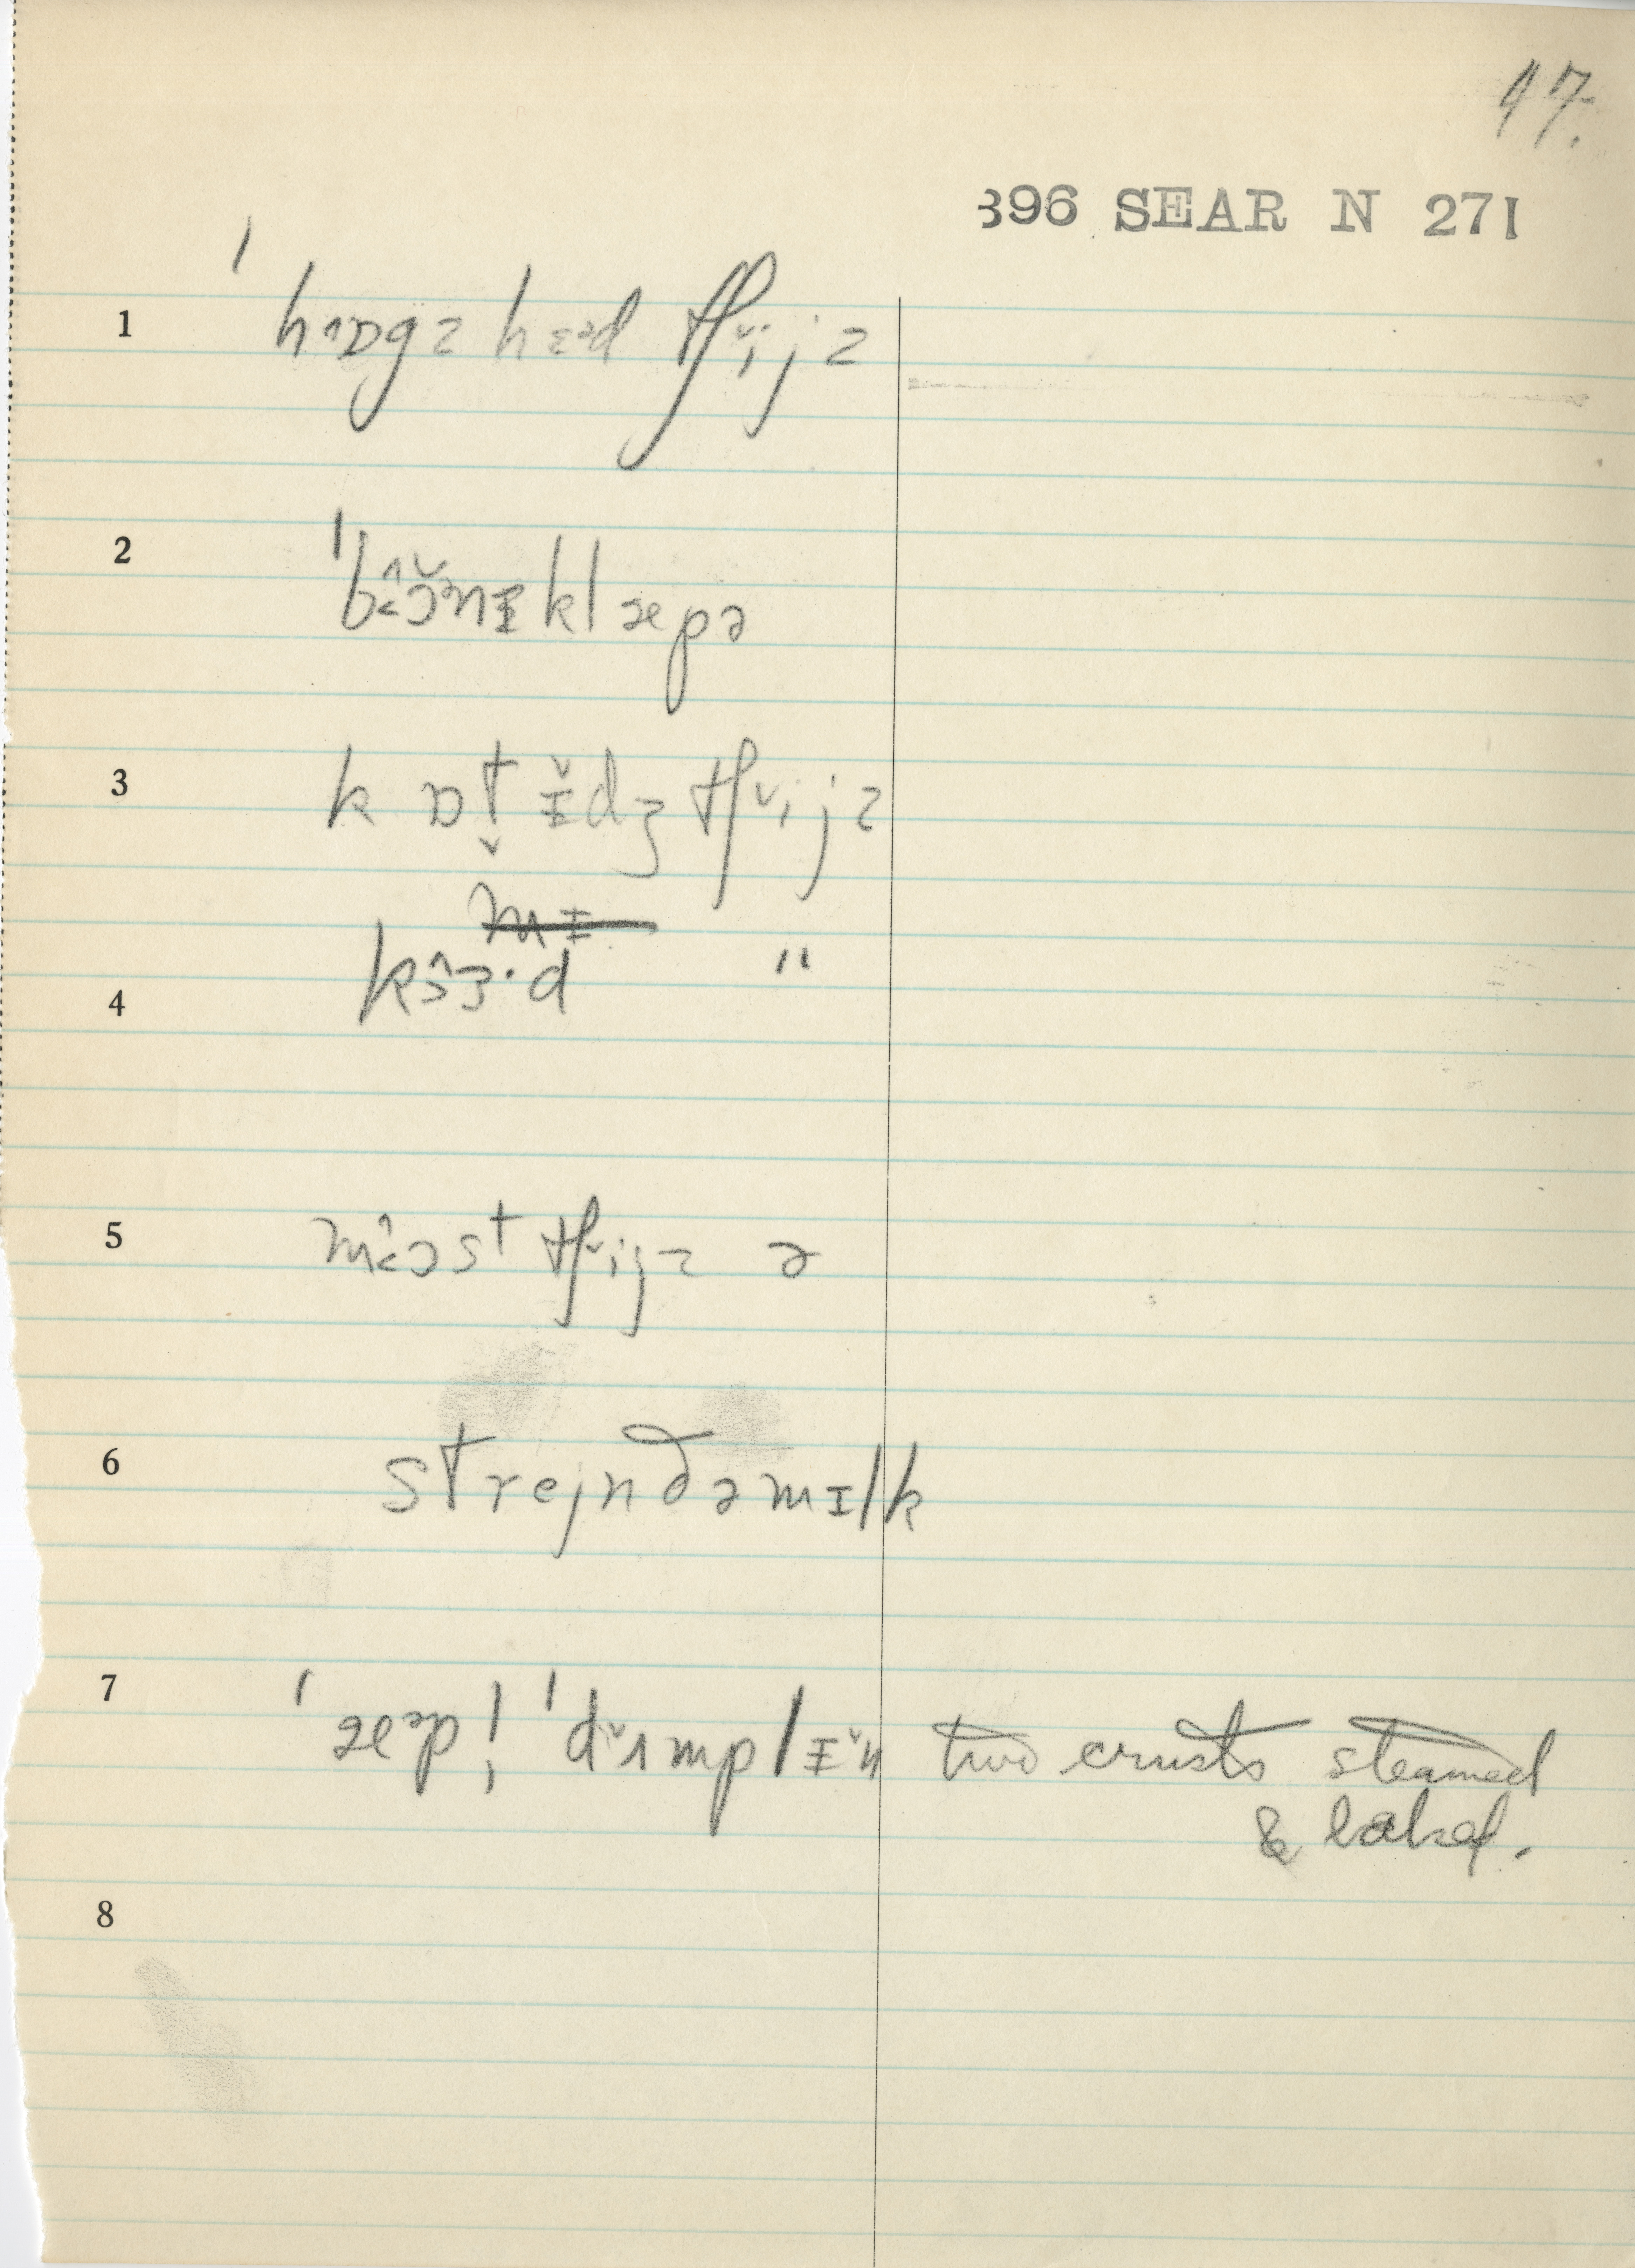 47.
396 SEAR N 271
1 ˈhɒ˄gz hɛᵊd tʃi˅jz
2 ˈbɔ̌˂ᵊnɪ klæpə
3 k ɒt̬ ɪ̌dʒ tʃi˅jz
4 kɜ˄ɜ·d "
5 mɔ˂st tʃi˅jz ə
6 strejn ðə mɪlk
7 ˈæᵊpl̩ ˈdʌ˅mplɪ˅n two crusts steamed
& baked.
8